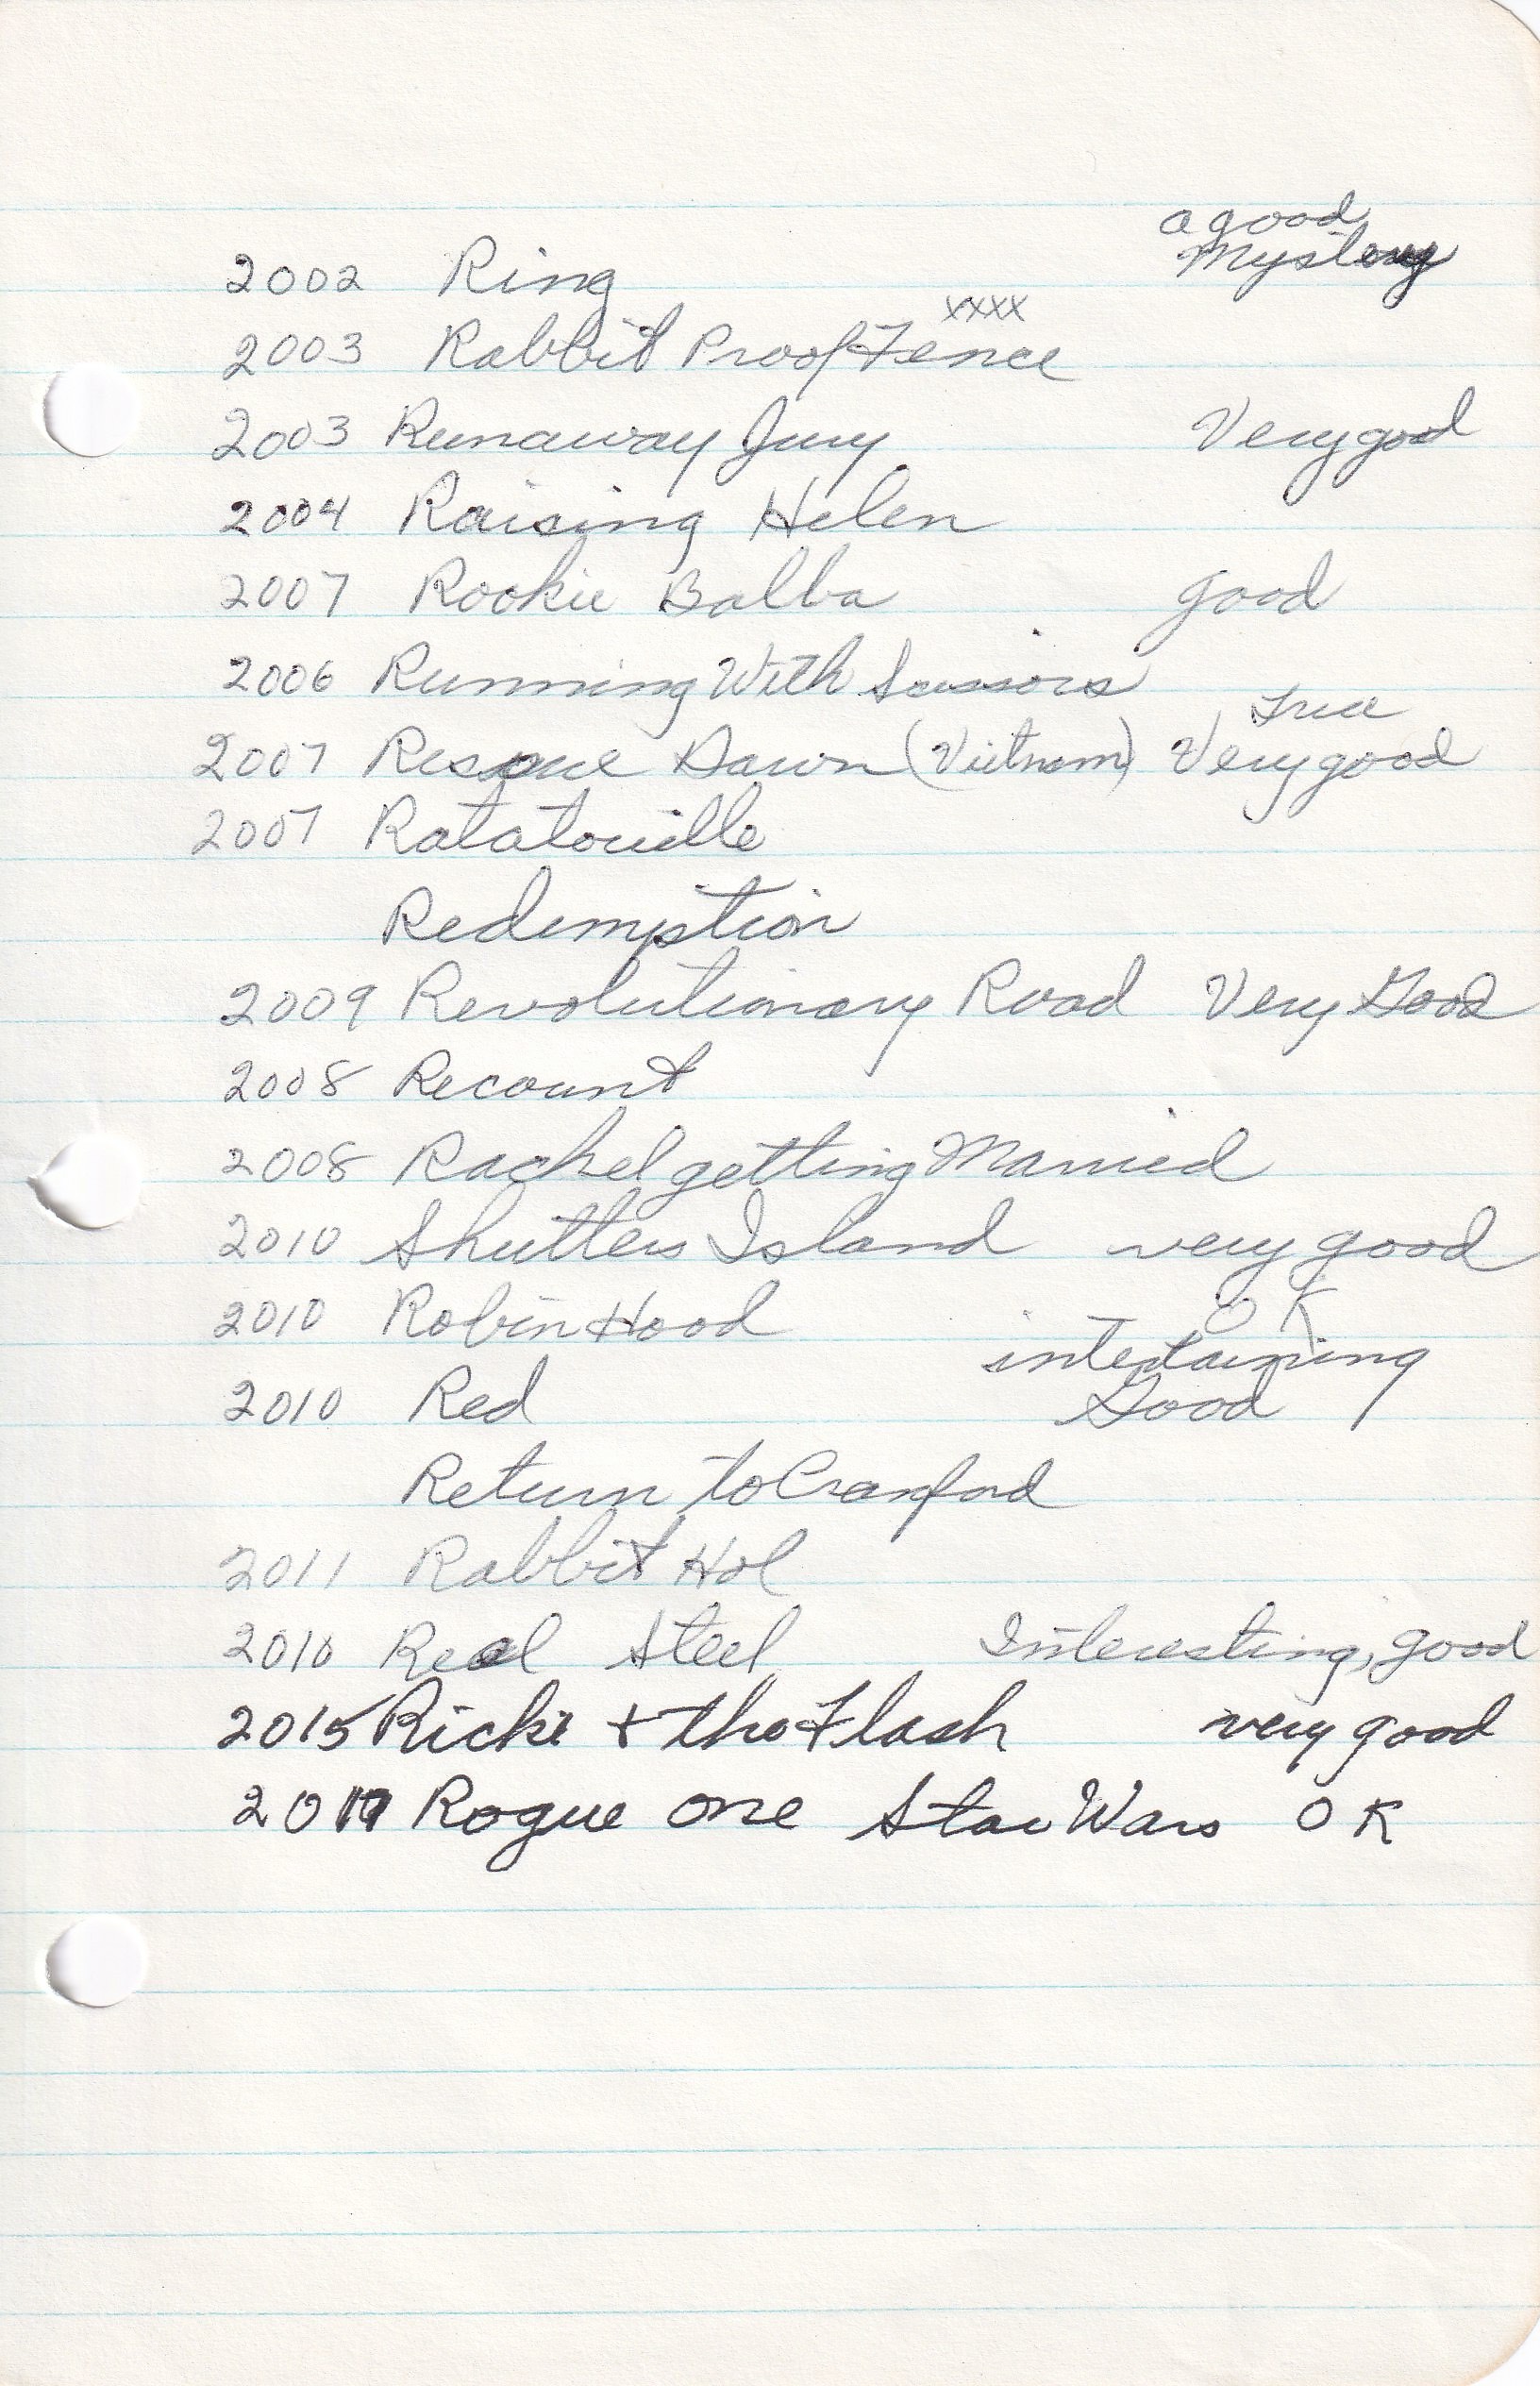 a good
2002 Ring Mystery
xxxx
2003 Rabbit Proof Fence
2003 Runaway Jury Very good
2004 Raising Helen
2007 Rookie Balba good
2006 Running With Scissors
True
2007 Rescue Dawn (Vietnam) Very good
2007 Ratatouille
Redemption
2009 Revolutionary Road Very Good
2008 Recount
2008 Rachel getting Married
2010 Shutters Island very good
2010 Robin Hood OK
intertaining
2010 Red Good
Return to Cranford
2011 Rabbit Hol
2010 Real Steel Interesting, good
2015 Ricki + the Flash very good
2017 Rogue one Star Wars OK